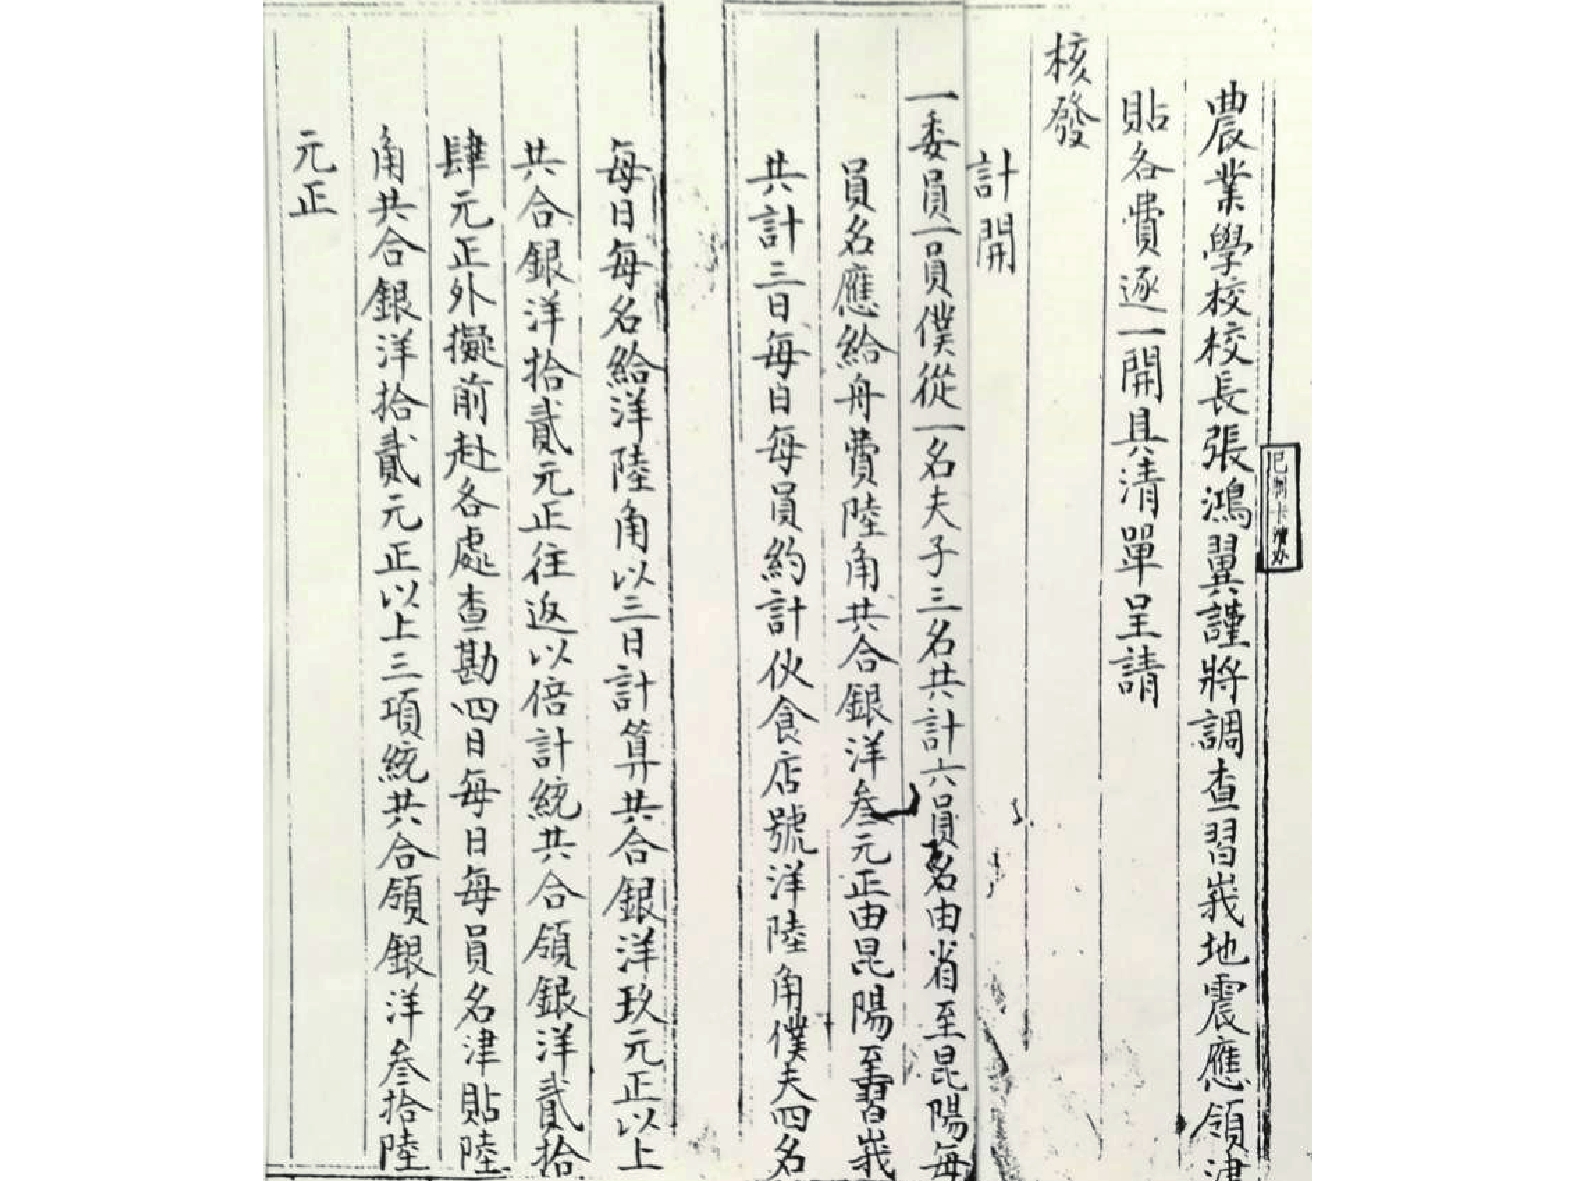 農業學校校長張鴻翼謹將調查習峩地震應領津
貼各費逐一開具清單呈請
核發
計開
一委員一員僕從一名夫子三名共計六員名由省至昆陽每
員名應給舟費陸角共合銀洋叁元正由昆陽至習峩
共計三日每日每員約計伙食店號洋陸角僕夫四名
每日每名給洋陸角以三日計算共合銀洋玖元正以上
共合銀洋拾貳元正往返以倍計統共合領銀洋貳拾
肆元正外擬前赴各處查勘四日每日每員名津貼陸
角共合銀洋拾貳元正以上三項統共合領銀洋叁拾陸
元正